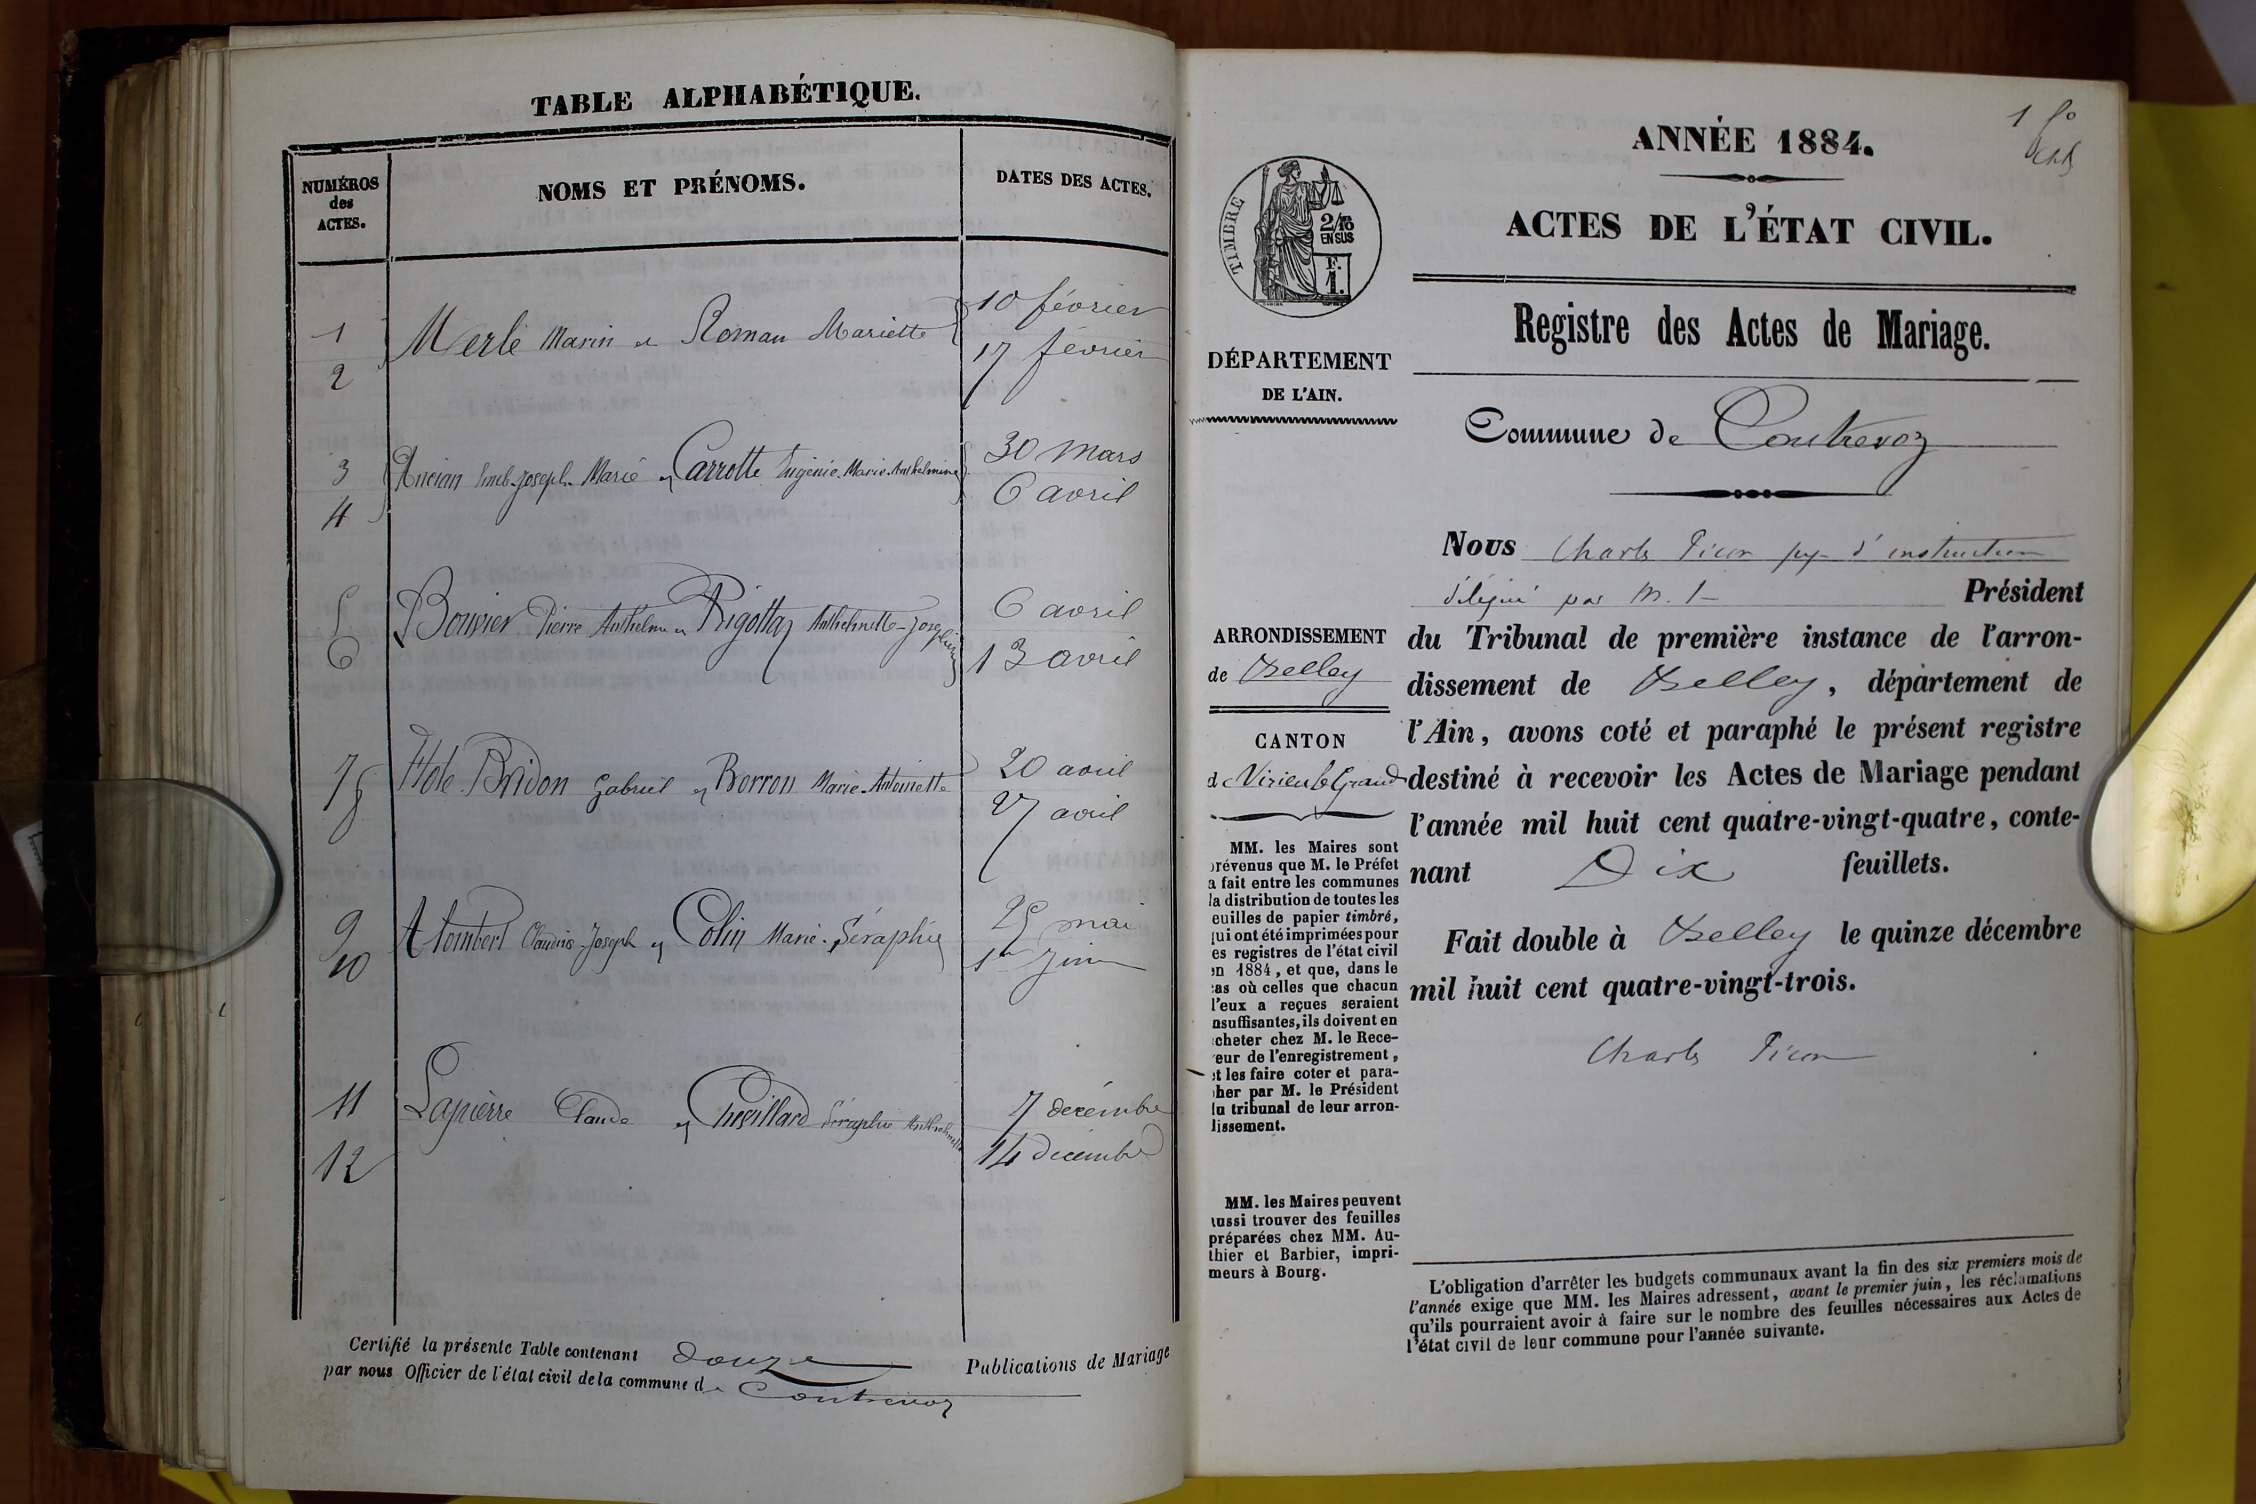 TABLE ALPHABÉTIQUE.
NUMÉROS des ACTES.
NOMS ET PRÉNOMS.
DATES DES ACTES.
1 Merle Marin et Roman Mariette 10 février
2 17 février
3 Ancian Emb. Joseph. Marie et Carrotte Eugénie. Marie. Anthelmine 30 mars
4 6 avril
5 Bouvier Pierre Anthelme et Rigottaz Anthelmette-Joséphine 6 avril
6 13 avril
7 Hote-Bridon Gabriel et Borron Marie-Antoinette 20 avril
8 27 avril
9 Atombert Claudius-Joseph et Colin Marie-Séraphie 25 mai
10 1er Juin
11 Lapierre Claude et Chevillard Séraphie Anthelmette 7 décembre
12 14 décembre
Certifié la présente Table contenant douze Publications de Mariage
par nous Officier de l'état civil de la commune de Contrevoz
1 fo
ANNÉE 1884.
ACTES DE L'ÉTAT CIVIL.
Registre des Actes de Mariage.
TIMBRE
2/10
EN SUS
F.
1.
DÉPARTEMENT
DE L'AIN.
Commune de Contrevoz
ARRONDISSEMENT
de Belley
CANTON
d Virieu le Grand
MM. les Maires sont
prévenus que M. le Préfet
a fait entre les communes
la distribution de toutes les
feuilles de papier timbré,
qui ont été imprimées pour
es registres de l'état civil
en 1884, et que, dans le
cas où celles que chacun
d'eux a reçues seraient
insuffisantes, ils doivent en
acheter chez M. le Rece-
veur de l'enregistrement,
et les faire coter et para-
pher par M. le Président
du tribunal de leur arron-
dissement.
MM. les Maires peuvent
aussi trouver des feuilles
préparées chez MM. Au-
thier et Barbier, impri-
meurs à Bourg.
Nous Charles Picon juge d'instruction
délégué par M. le Président
du Tribunal de première instance de l'arron-
dissement de Belley, département de
l'Ain, avons coté et paraphé le présent registre
destiné à recevoir les Actes de Mariage pendant
l'année mil huit cent quatre-vingt-quatre, conte-
nant Dix feuillets.
Fait double à Belley le quinze décembre
mil huit cent quatre-vingt-trois.
Charles Picon
L'obligation d'arrêter les budgets communaux avant la fin des six premiers mois de
l'année exige que MM. les Maires adressent, avant le premier juin, les réclamations
qu'ils pourraient avoir à faire sur le nombre des feuilles nécessaires aux Actes de
l'état civil de leur commune pour l'année suivante.